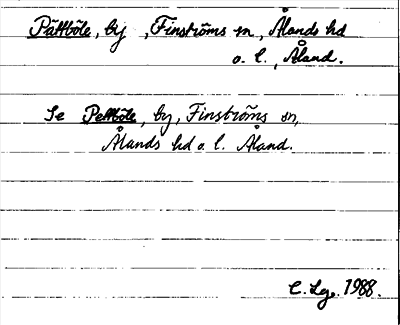 Pättböle, by, Finströms sn, Ålands hd
o. l., Åland.
Se Pettböle, by, Finströms sn,
Ålands hd o. l. Åland.
C. Lg. 1988.